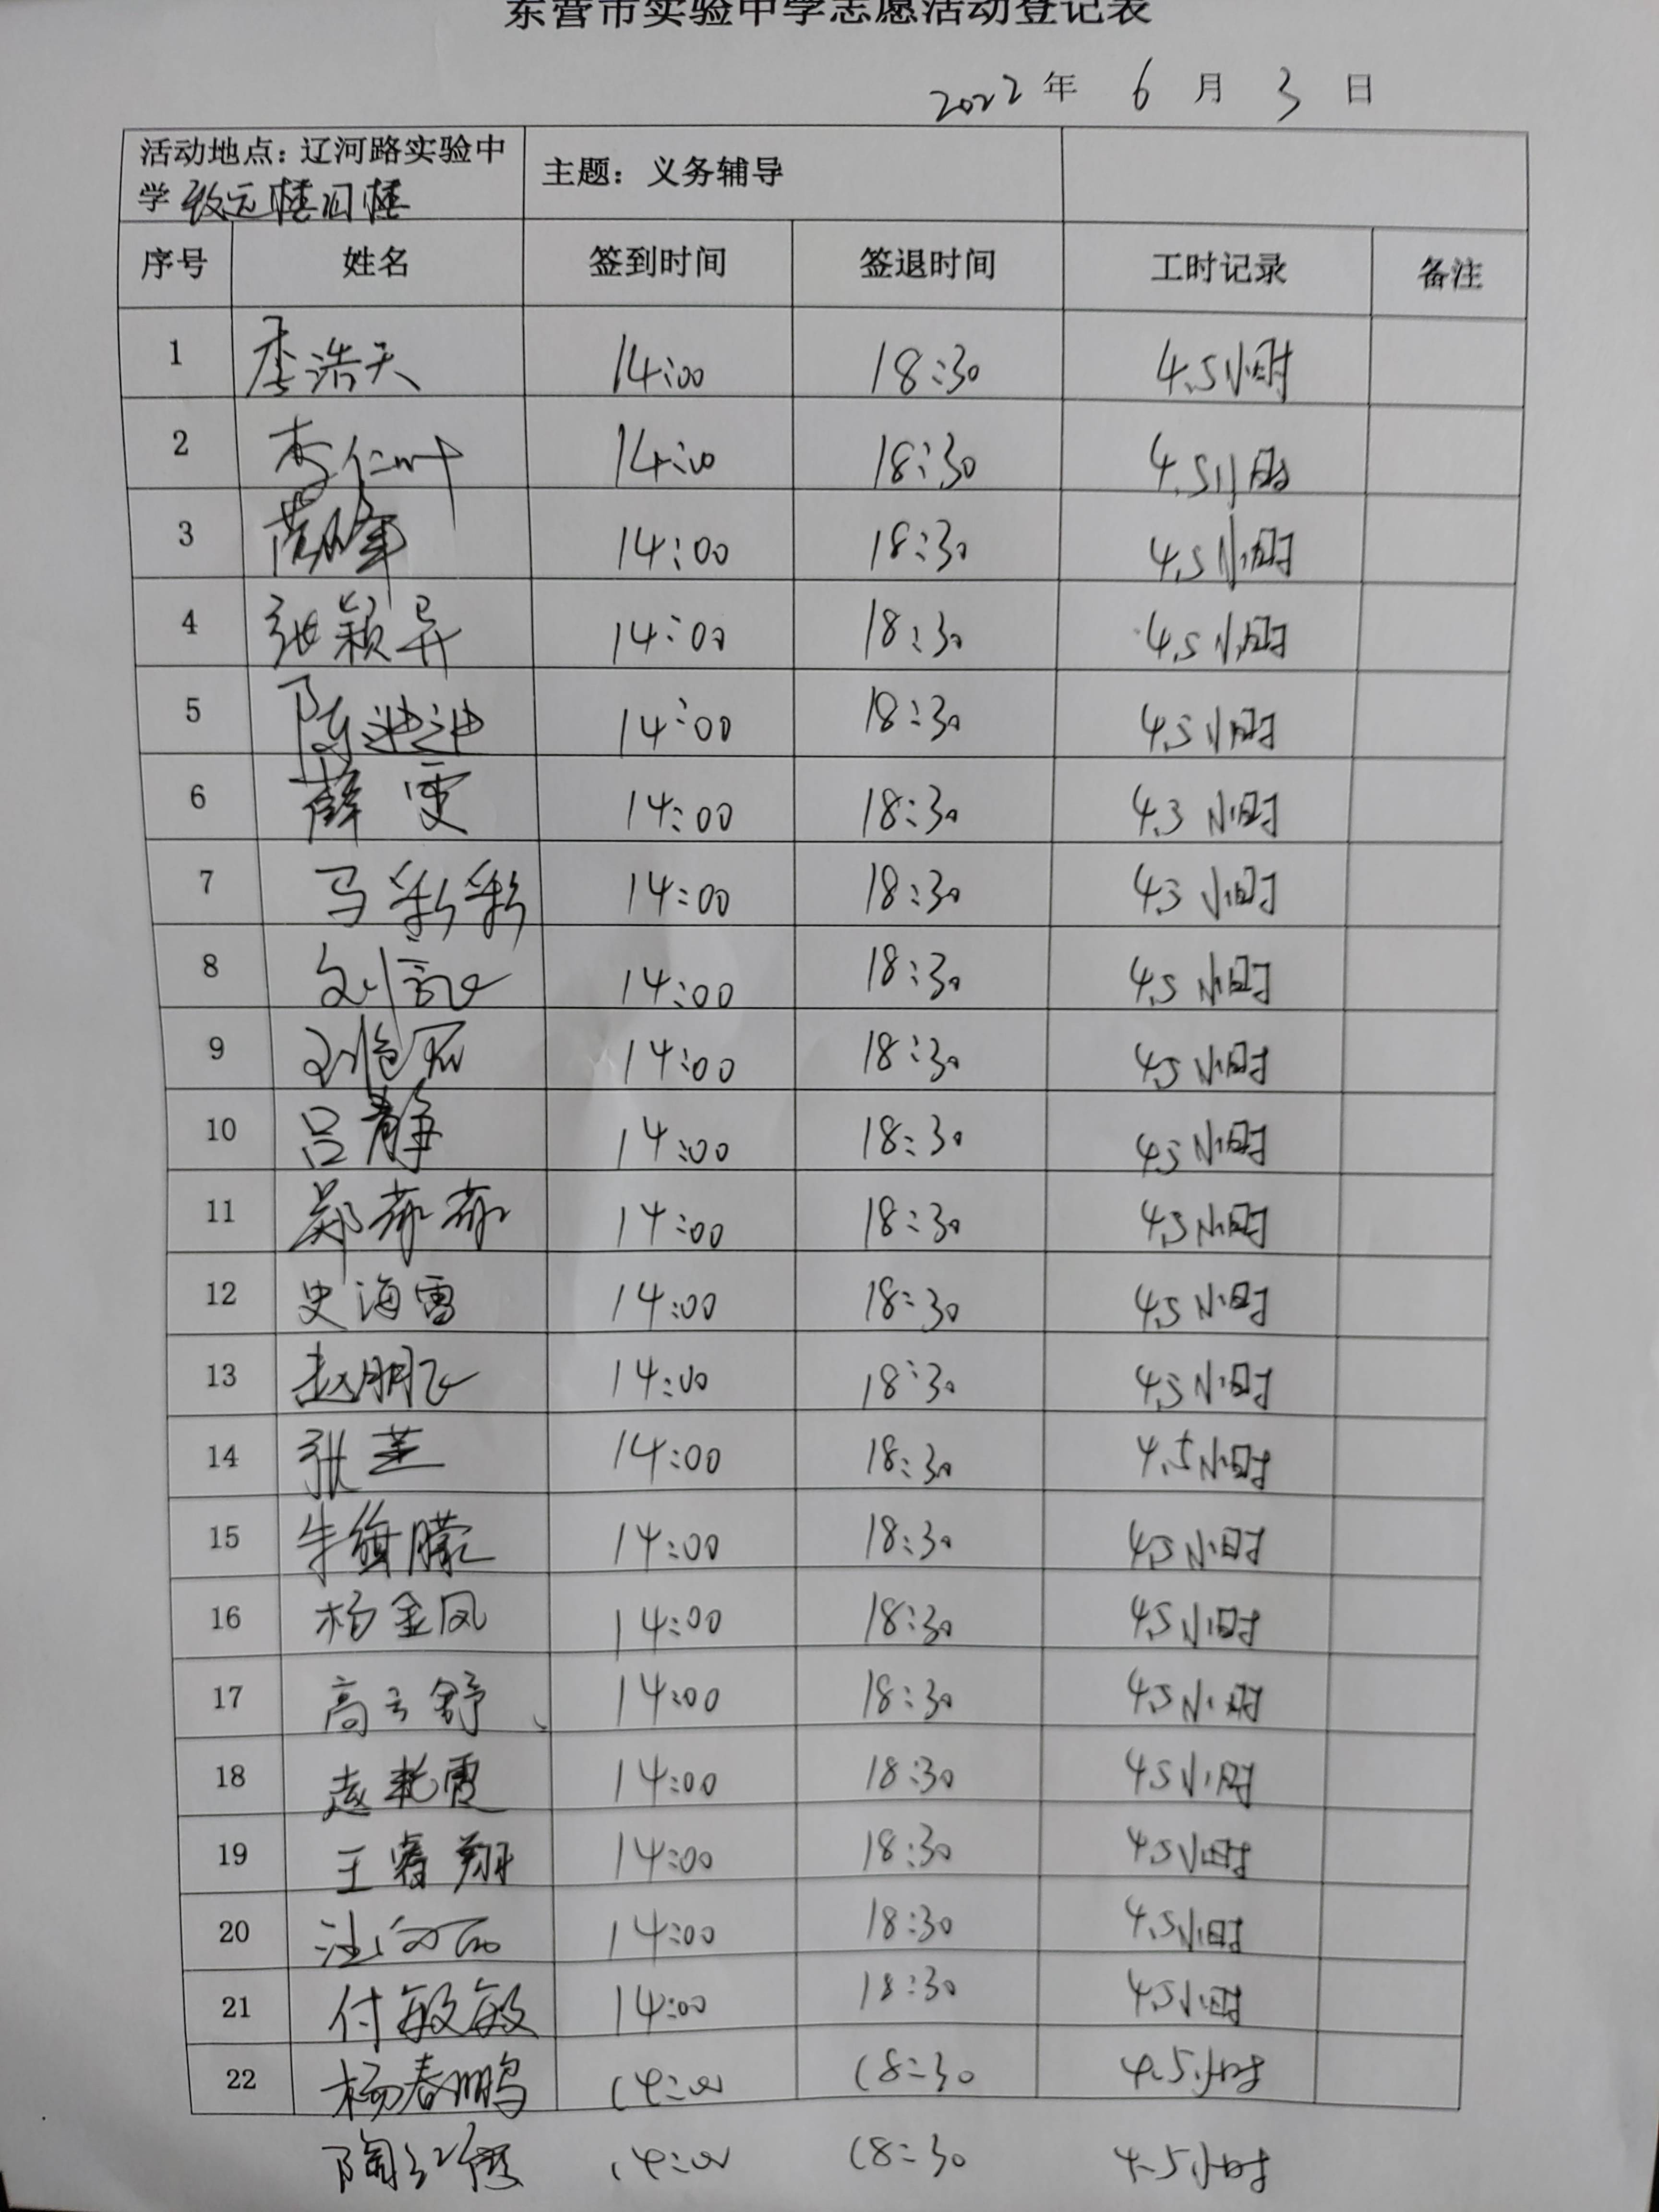 东营市实验中学志愿活动登记表
2022 年 6 月 3 日
活动地点：辽河路实验中 主题：义务辅导
学 致远楼 楼
序号 姓名 签到时间 签退时间 工时记录 备注
1 李浩天 14:00 18:30 4.5小时
2 李仁叶 14:00 18:30 4.5小时
3 14:00 18:30 4.5小时
4 张颖异 14:00 18:30 4.5小时
5 陈迪迪 14:00 18:30 4.5小时
6 薛雯 14:00 18:30 4.5小时
7 马彩彩 14:00 18:30 4.5小时
8 刘 飞 14:00 18:30 4.5小时
9 刘 14:00 18:30 4.5小时
10 吕静 14:00 18:30 4.5小时
11 郑 14:00 18:30 4.5小时
12 史海雪 14:00 18:30 4.5小时
13 赵鹏飞 14:00 18:30 4.5小时
14 张 14:00 18:30 4.5小时
15 牛 朦 14:00 18:30 4.5小时
16 杨金凤 14:00 18:30 4.5小时
17 高云舒 14:00 18:30 4.5小时
18 赵艳霞 14:00 18:30 4.5小时
19 王睿翔 14:00 18:30 4.5小时
20 14:00 18:30 4.5小时
21 付敏敏 14:00 18:30 4.5小时
22 杨春鹏 14:00 18:30 4.5小时
陶红 14:00 18:30 4.5小时